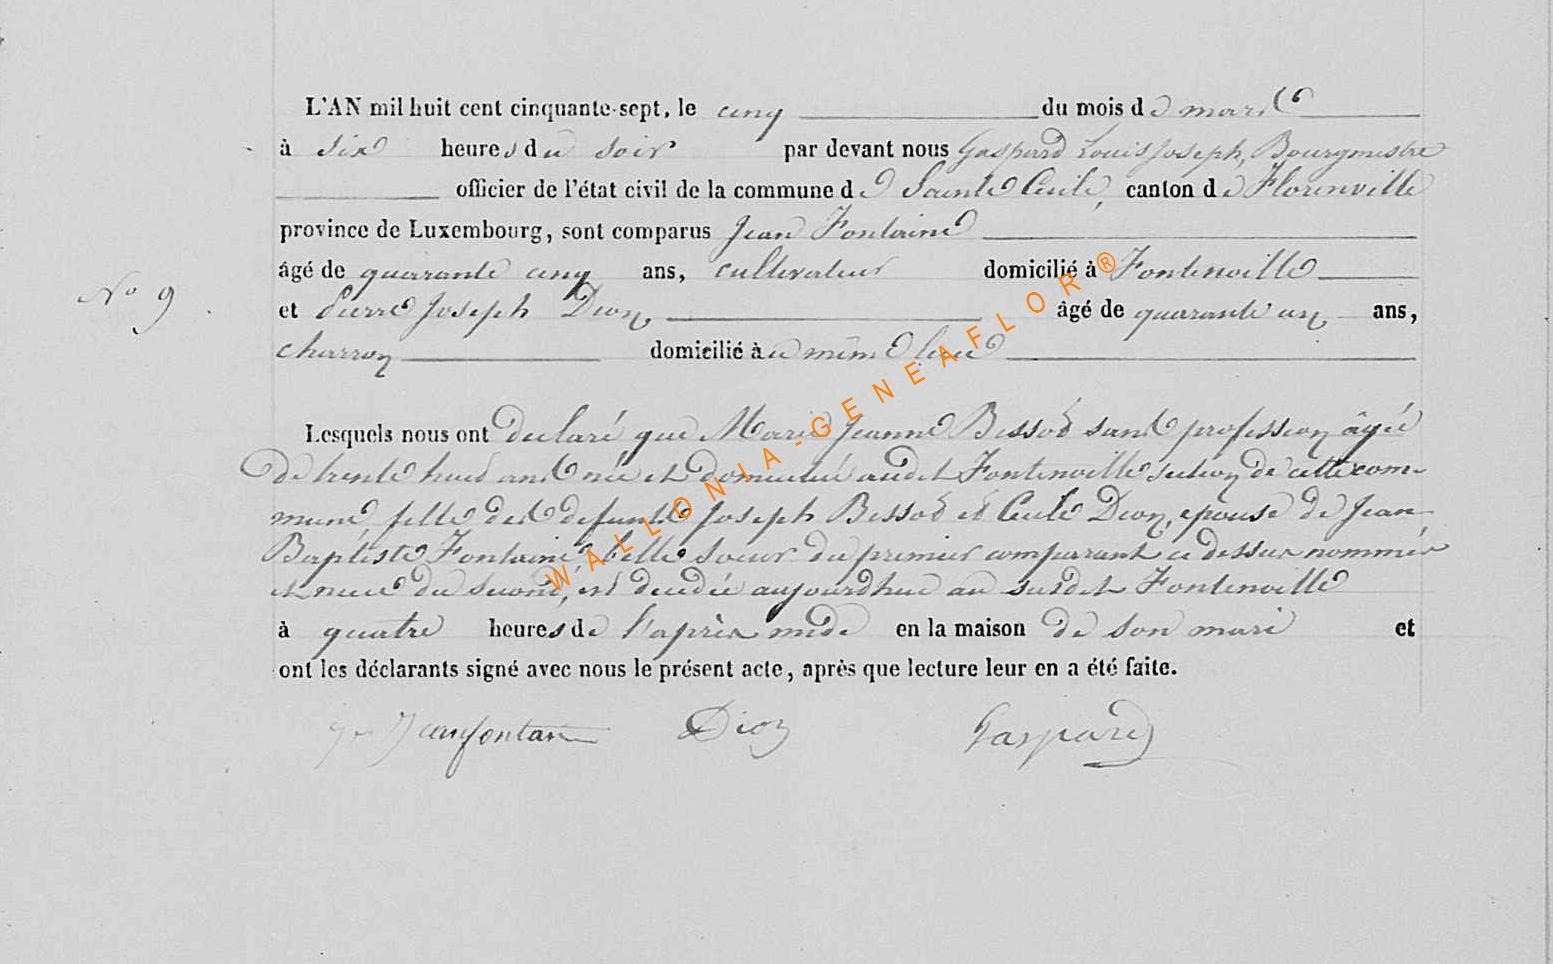 L'AN mil huit cent cinquante-sept, le cinq du mois de mars
à six heures du soir par devant nous Gaspard Louis Joseph, Bourgmestre
officier de l'état civil de la commune de Sainte Cecile, canton de Florenville
province de Luxembourg, sont comparus Jean Fontaine
âgé de quarante cinq ans, cultivateur domicilié à Fontenoille
N° 9
et Pierre Joseph Dion, âgé de quarante un ans,
charron domicilié au même lieu
Lesquels nous ont declaré que Marie Jeanne Bissot sans profession âgée
de trente huit ans née et domiciliée audit Fontenoille section de cette com-
mune, fille des defunts Joseph Bissot et Cecile Dion, epouse de Jean
Baptiste Fontaine, belle soeur du premier comparant ci dessus nommé
et niece du second, est decedée aujourdhui au susdit Fontenoille
à quatre heures de l'après midi en la maison de son mari et
ont les déclarants signé avec nous le présent acte, après que lecture leur en a été faite.
Jean fontain Dion Gaspard
WALLONIA-GENEAFLOR®